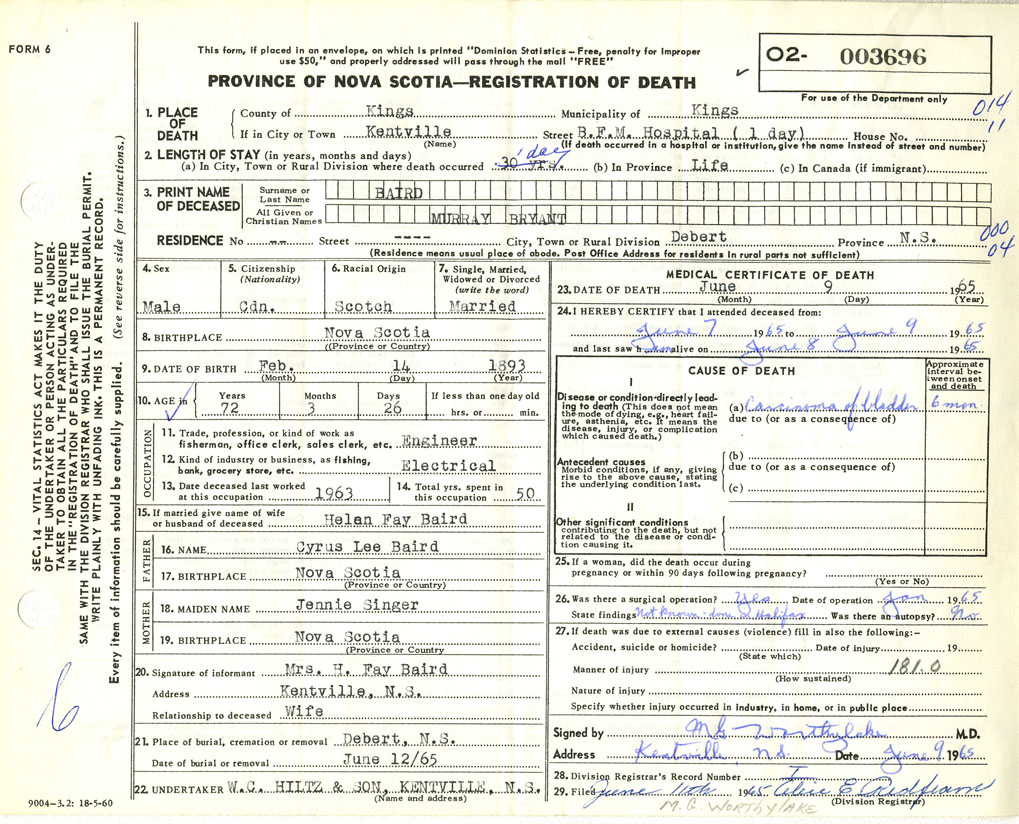 FORM 6
This form, if placed in an envelope, on which is printed "Dominion Statistics – Free, penalty for improper
use $50," and properly addressed will pass through the mail "FREE"
PROVINCE OF NOVA SCOTIA—REGISTRATION OF DEATH
O2- 003696
For use of the Department only
014
11
1. PLACE OF DEATH
County of Kings Municipality of Kings
If in City or Town Kentville Street B.F.M. Hospital ( 1 day) House No.
(Name) (If death occurred in a hospital or institution, give the name instead of street and number)
2. LENGTH OF STAY (in years, months and days)
1 day
(a) In City, Town or Rural Division where death occurred 30 yrs. (b) In Province Life (c) In Canada (if immigrant)
3. PRINT NAME OF DECEASED
Surname or Last Name BAIRD
All Given or Christian Names MURRAY BRYANT
000
04
RESIDENCE No -- Street ---- City, Town or Rural Division Debert Province N.S.
(Residence means usual place of abode. Post Office Address for residents in rural parts not sufficient)
4. Sex Male
5. Citizenship (Nationality) Cdn.
6. Racial Origin Scotch
7. Single, Married, Widowed or Divorced (write the word) Married
8. BIRTHPLACE Nova Scotia
((Province or Country)
9. DATE OF BIRTH Feb. 14 1893
(Month) (Day) (Year)
10. AGE in Years 72 Months 3 Days 26 If less than one day old hrs. or min.
OCCUPATION
11. Trade, profession, or kind of work as
fisherman, office clerk, sales clerk, etc. Engineer
12. Kind of industry or business, as fishing,
bank, grocery store, etc. Electrical
13. Date deceased last worked at this occupation 1963
14. Total yrs. spent in this occupation 50
15. If married give name of wife
or husband of deceased Helen Fay Baird
FATHER
16. NAME Cyrus Lee Baird
17. BIRTHPLACE Nova Scotia
(Province or Country)
MOTHER
18. MAIDEN NAME Jennie Singer
19. BIRTHPLACE Nova Scotia
(Province or Country
20. Signature of informant Mrs. H. Fay Baird
Address Kentville, N.S.
Relationship to deceased Wife
21. Place of burial, cremation or removal Debert, N.S.
Date of burial or removal June 12/65
22. UNDERTAKER W.C. HILTZ & SON, KENTVILLE, N.S.
(Name and address)
MEDICAL CERTIFICATE OF DEATH
23. DATE OF DEATH June 9 1965
(Month) (Day) (Year)
24. I HEREBY CERTIFY that I attended deceased from:
June 7 1965 to June 9 1965
and last saw h alive on June 8 1965
CAUSE OF DEATH
Approximate interval between onset and death
I
Disease or condition directly leading to death (This does not mean the mode of dying, e.g., heart failure, asthenia, etc. It means the disease, injury, or complication which caused death.)
(a) Carcinoma of bladder 6 mon
due to (or as a consequence of)
Antecedent causes
Morbid conditions, if any, giving rise to the above cause, stating the underlying condition last.
(b)
due to (or as a consequence of)
(c)
II
Other significant conditions
contributing to the death, but not related to the disease or condition causing it.
25. If a woman, did the death occur during
pregnancy or within 90 days following pregnancy?
(Yes or No)
26. Was there a surgical operation? Yes Date of operation Jan 1965
State findings Not known: done in Halifax Was there an autopsy? No
27. If death was due to external causes (violence) fill in also the following:–
Accident, suicide or homicide? Date of injury 19
(State which)
Manner of injury 181.0
(How sustained)
Nature of injury
Specify whether injury occurred in industry, in home, or in public place
Signed by M G Worthylake M.D.
Address Kentville, N.S. Date June 9 1965
28. Division Registrar's Record Number
29. Filed June 11th 1965 Alice E Redfearn
(Division Registrar)
M. G. WORTHYLAKE
SEC. 14 – VITAL STATISTICS ACT MAKES IT THE DUTY
OF THE UNDERTAKER OR PERSON ACTING AS UNDER-
TAKER TO OBTAIN ALL THE PARTICULARS REQUIRED
IN THE "REGISTRATION OF DEATH" AND TO FILE THE
SAME WITH THE DIVISION REGISTRAR WHO SHALL ISSUE THE BURIAL PERMIT.
WRITE PLAINLY WITH UNFADING INK. THIS IS A PERMANENT RECORD.
Every item of information should be carefully supplied. (See reverse side for instructions.)
6
9004–3.2: 18-5-60